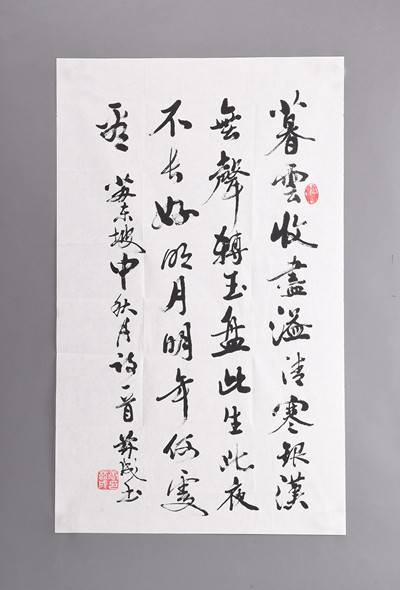 暮雲收盡溢清寒銀漢
無聲轉玉盤此生此夜
不长好明月明年何處
看 蘇東坡中秋月詩一首